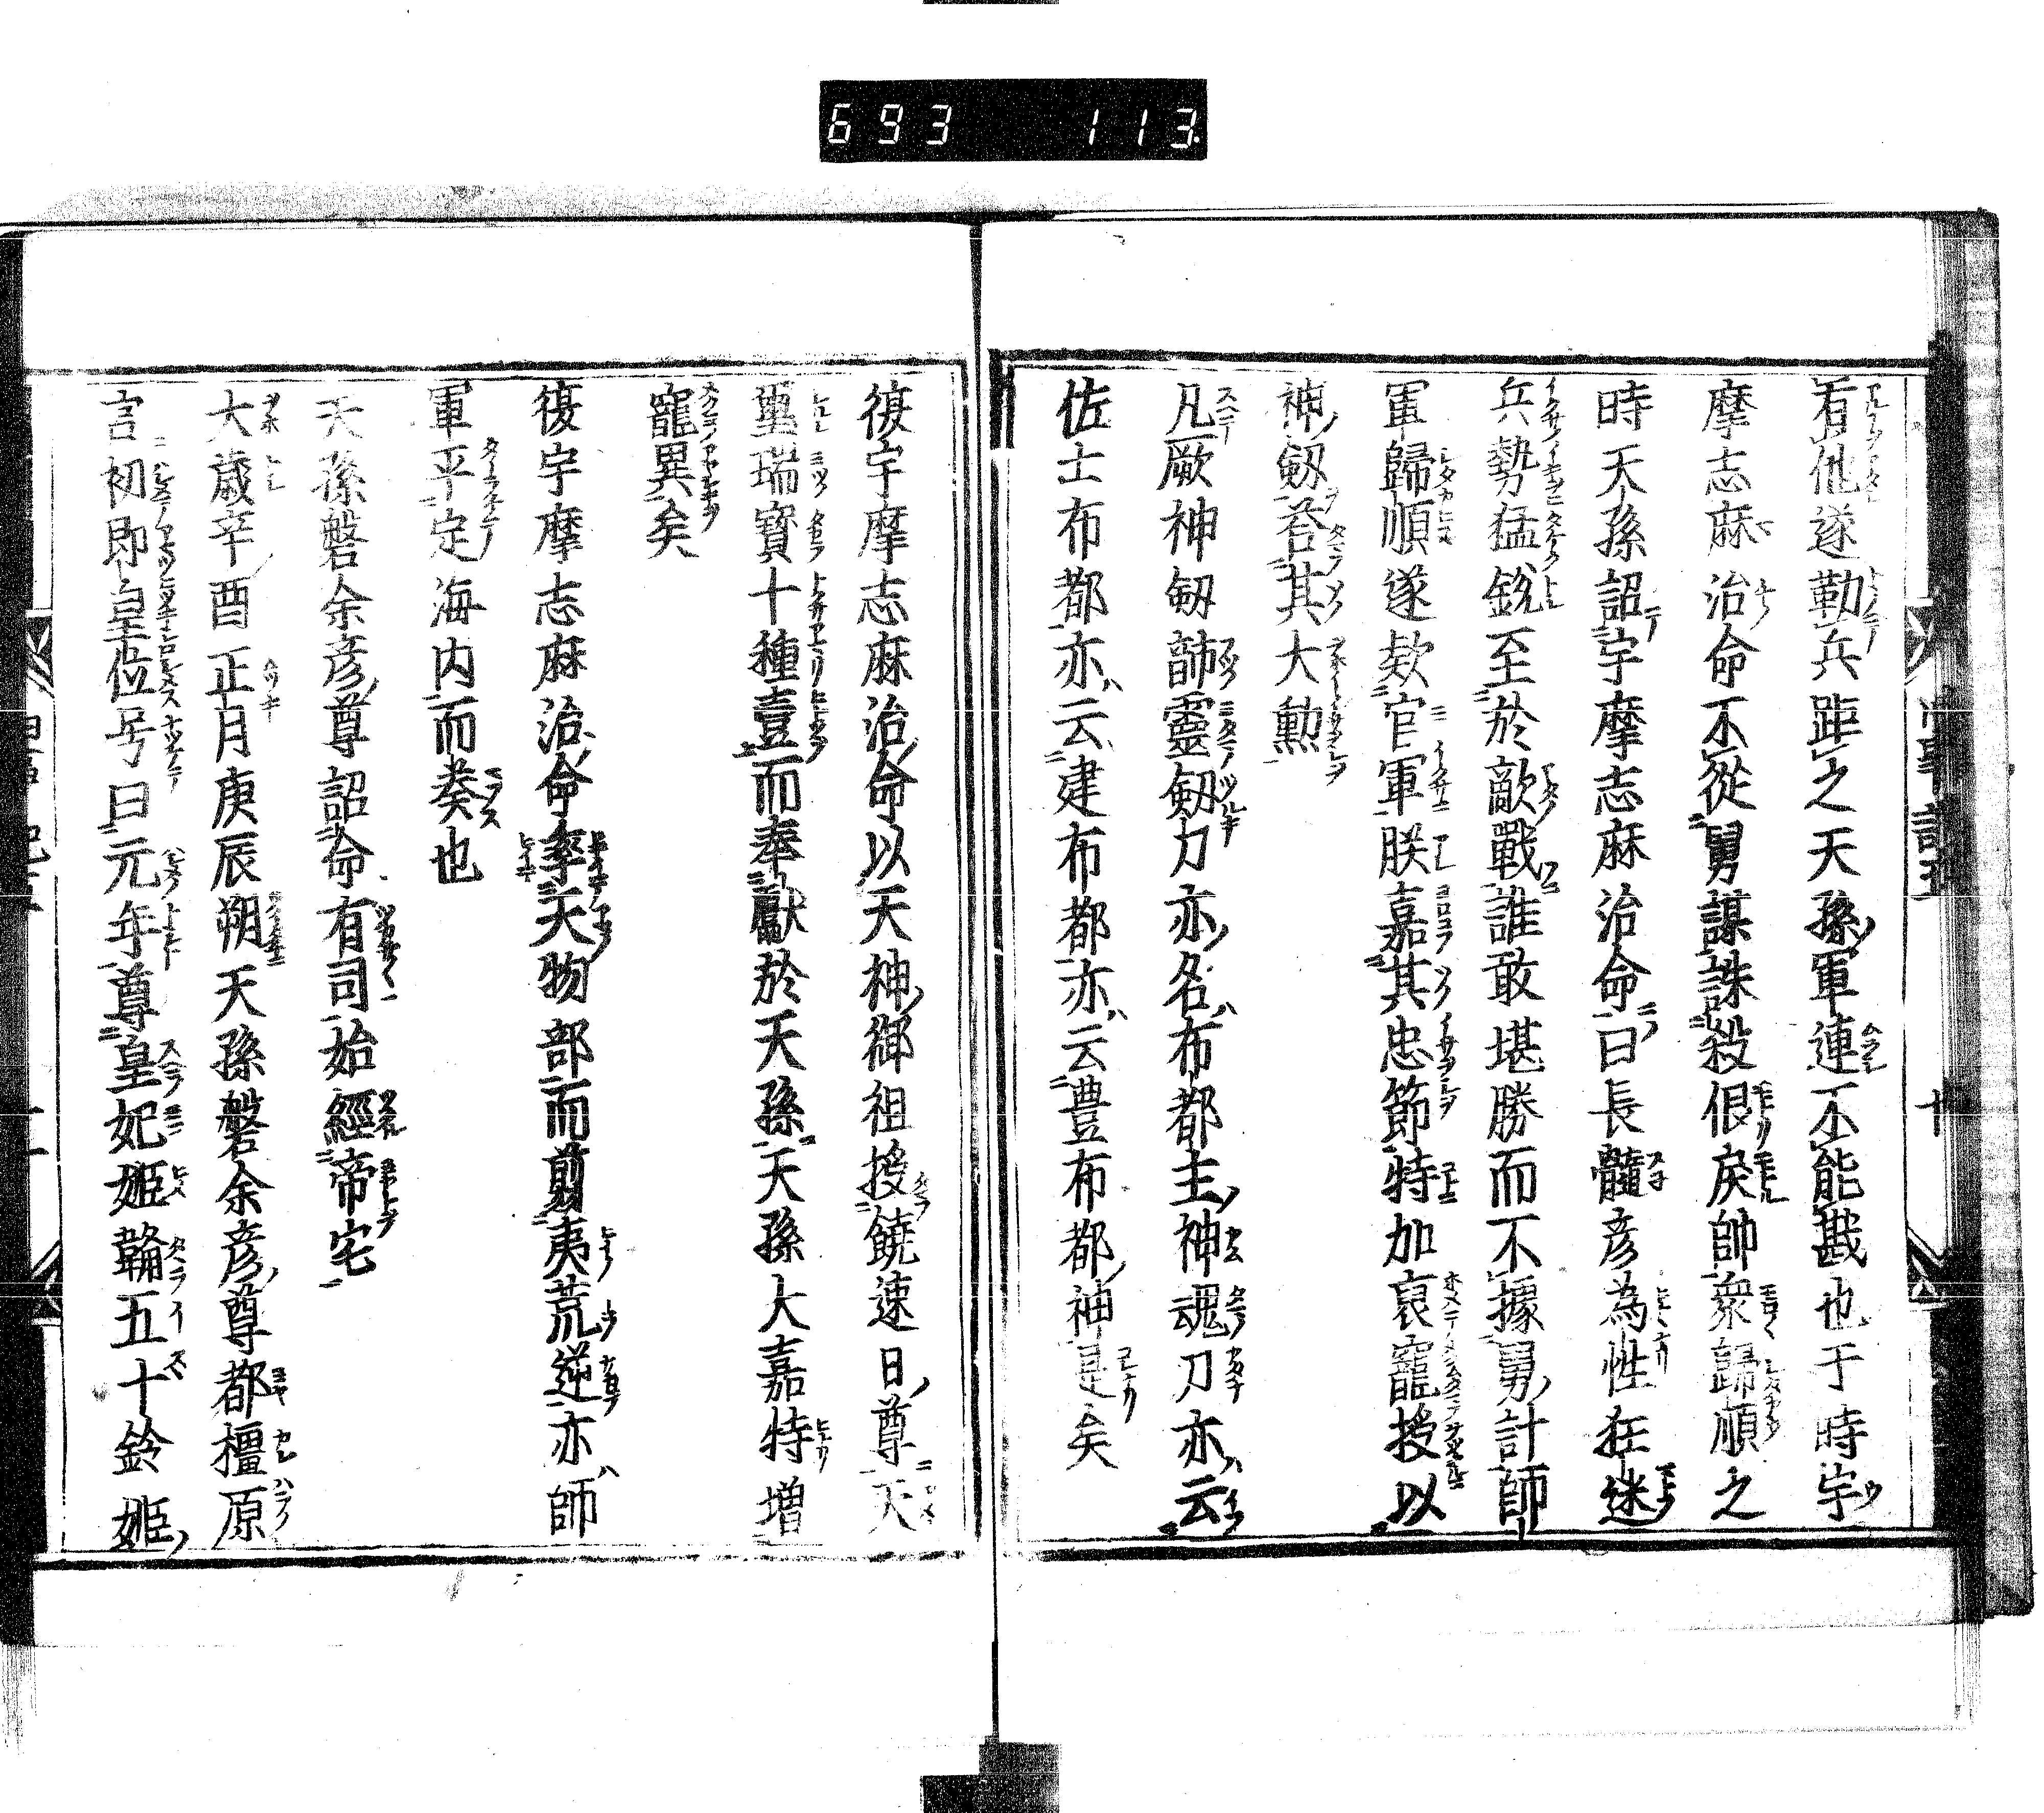 693 113
有他遂勒兵距之天孫軍連不能戡也于時宇
摩志麻治命不從舅謀誅殺佷戾帥衆歸順之
時天孫詔宇摩志麻治命曰長髓彦為性狂迷
兵勢猛銳至於敵戰誰敢堪勝而不據舅計師
軍歸順遂欵官軍朕嘉其忠節特加褒寵授以
神劔荅其大勲
凡厥神劔韴靈劔刀亦名布都主神魂刀亦云
佐士布都亦云建布都亦云豊布都神是矣
復宇摩志麻治命以天神御祖授饒速日尊天
璽瑞寶十種壹而奉獻於天孫天孫大嘉特增
寵異矣
復宇摩志麻治命率天物部而剪夷荒逆亦師
軍平定海内而奏也
天孫磐余彦尊詔命有司始經帝宅
大歳辛酉正月庚辰朔天孫磐余彦尊都橿原
宮初即皇位号曰元年尊皇妃姬韛五十鈴姬